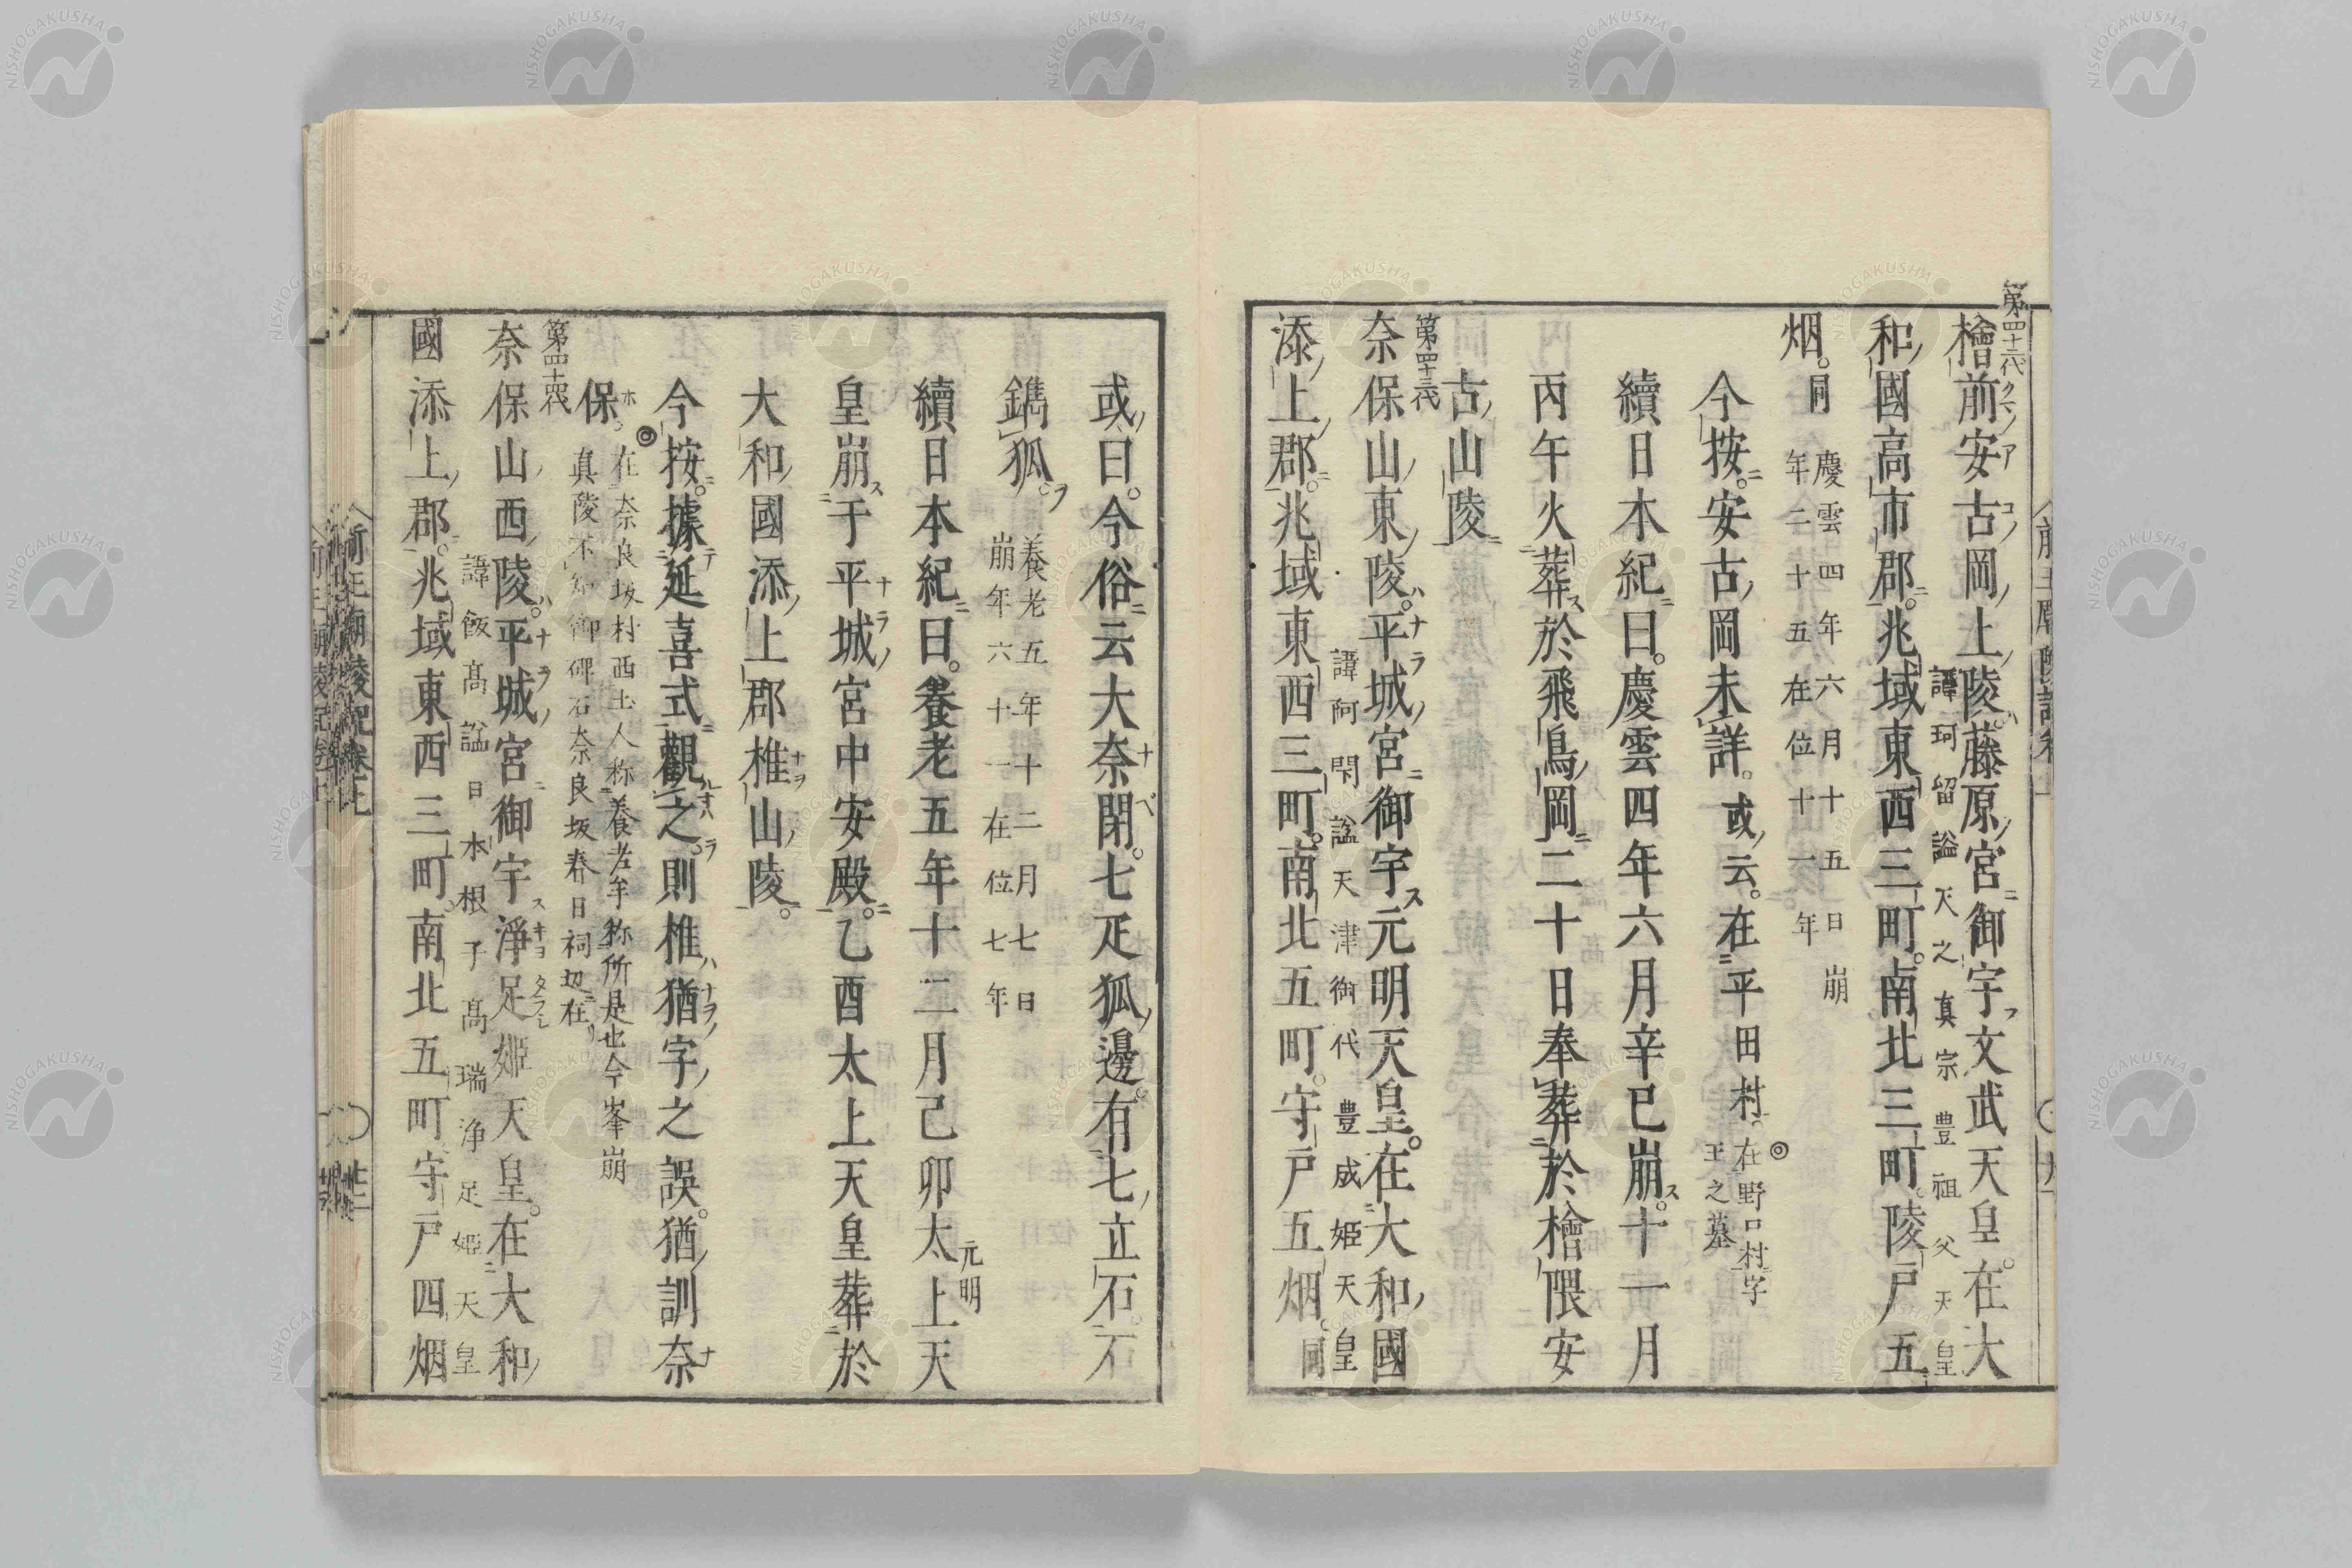 第四十二代
檜前安古岡上陵藤原宮御宇文武天皇。在大
諱珂留謚天之真宗豊祖父天皇
和國高市郡。兆域東西三町。南北三町。陵戸五
烟。同
慶雲四年六月十五日崩
年二十五在位十一年
今按。安古岡未詳。或云。在平田村。
◎在野口村字
王之墓
續日本紀曰。慶雲四年六月辛巳崩。十一月
丙午火葬於飛鳥岡二十日奉葬於檜隈安
古山陵
第四十三代
奈保山東陵。平城宮御宇元明天皇。在大和國
諱阿閇謚天津御代豊成姫天皇
添上郡。兆域東西三町。南北五町。守戸五烟。同
或曰。今俗云大奈閉。七疋狐邊。有七立石。石
鐫狐。
養老五年十二月七日
崩年六十一在位七年
續日本紀曰。養老五年十二月己卯太上天
元明
皇崩于平城宮中安殿。乙酉太上天皇葬於
大和國添上郡椎山陵。
今按。據延喜式觀之則椎猶字之誤。猶訓奈
保。
◎在奈良坂村西土人称養老年称所是也今峯崩
真陵不知御碑石奈良坂春日祠辺在
第四十四代
奈保山西陵。平城宮御宇淨足姫天皇。在大和
諱飯髙謚日本根子髙瑞浄足姫天皇
國添上郡。兆域東西三町。南北五町守戸四烟
前王廟陵記卷上